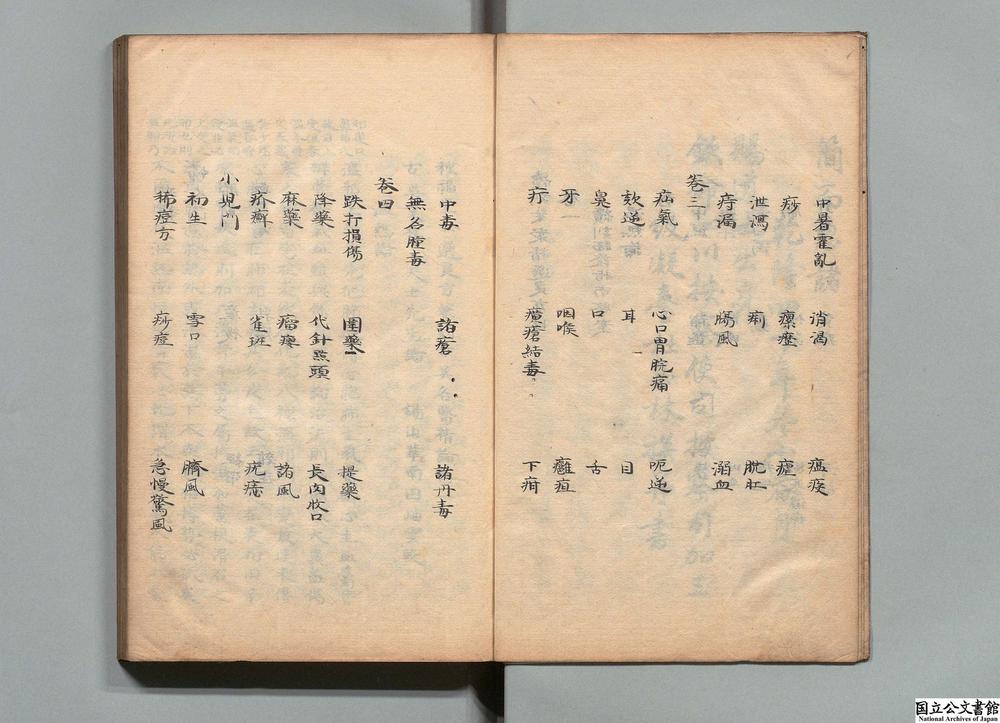 中暑霍亂 消渴 瘟疾
痧 瘰𤵸 瘧
泄瀉 痢 脫肛
痔漏 腸風 溺血
卷三
疝氣 心口胃脘痛 呃逆
欬逆 耳 目
鼻 口 舌
牙 咽喉 癰疽
疔 癀瘡結毒 下疳
無名腫毒
諸瘡 諸丹毒
卷四
跌打損傷 圍藥 提藥
降藥 代針點頭 長肉收口
麻藥 瘤瘻 諸風
疥癬 雀斑 疣痣
小兒門
初生 雪口 臍風
稀痘方 痧痘 急慢驚風
国立公文書館
National Archives of Japan